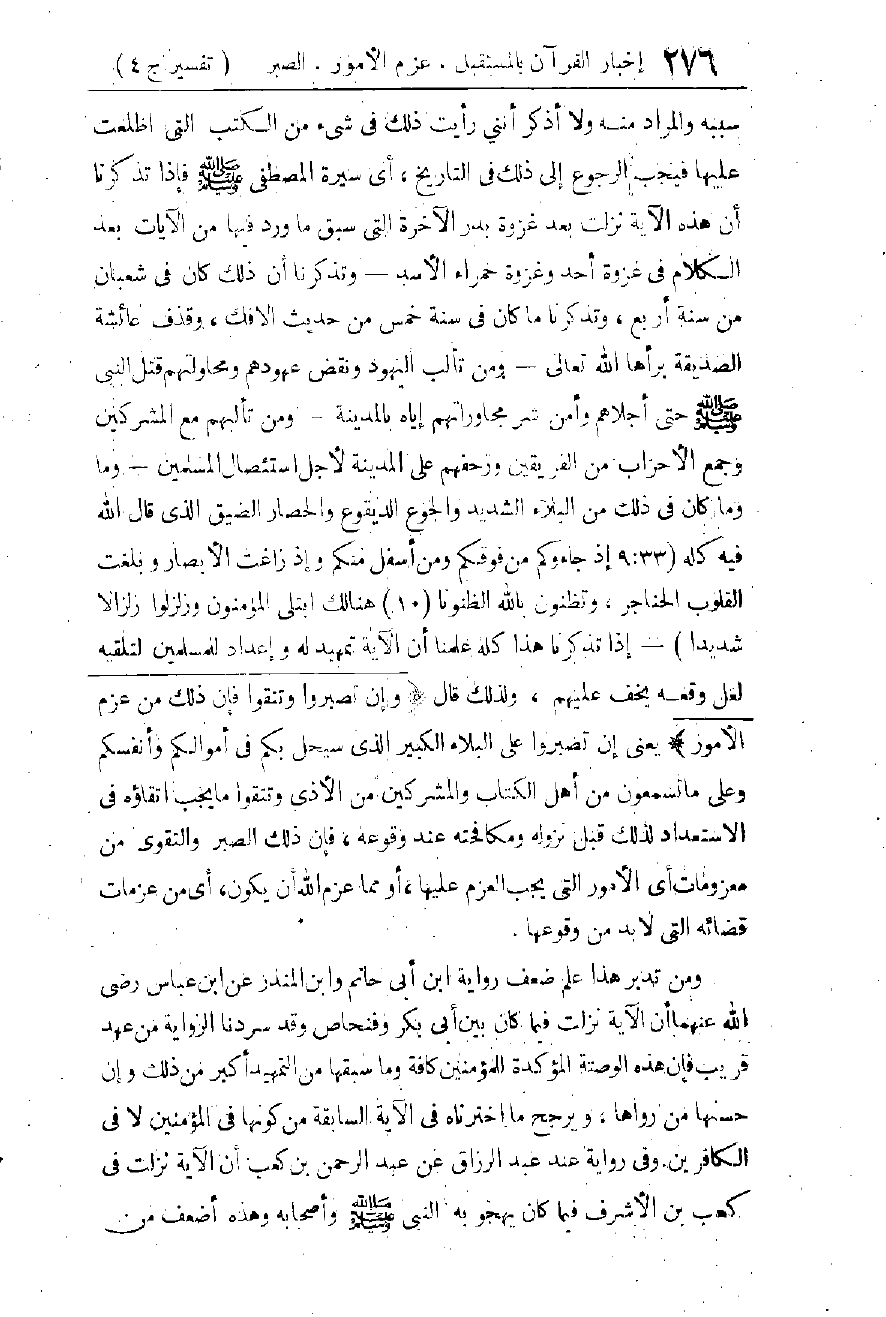 ٢٧٦ إخبار القرآن بالمستقبل . عزم الأمور . الصبر ( تفسير ج ٤ )
سببه والمراد منه ولا أذكر أنني رأيت ذلك فى شىء من الكتب التى اطلعت
عليها فيجب الرجوع إلى ذلك فى التاريخ ، أى سيرة المصطفى ﷺ فإذا تذكرنا
أن هذه الآية نزلت بعد غزوة بدر الآخرة التى سبق ما ورد فيها من الآيات بعد
الكلام فى غزوة أحد وغزوة حمراء الأسد — وتذكرنا أن ذلك كان فى شعبان
من سنة أربع ، وتذكرنا ما كان فى سنة خمس من حديث الافك ، وقذف عائشة
الصديقة برأها الله تعالى — ومن تألب اليهود ونقض عهودهم ومحاولتهم قتل النبى
ﷺ حتى أجلاهم وأمن شر مجاوراتهم إياه بالمدينة – ومن تألبهم مع المشركين
وجمع الأحزاب من الفريقين وزحفهم على المدينة لأجل استئصال المسلمين — وما
وما كان فى ذلك من البلاء الشديد والجوع الديقوع والحصار الضيق الذى قال الله
فيه كله (٣٣:٩ إذ جاءوكم من فوقكم ومن أسفل منكم وإذ زاغت الأبصار وبلغت
القلوب الحناجر ، وتظنون بالله الظنونا (١٠) هنالك ابتلى المؤمنون وزلزلوا زلزالا
شديدا ) — إذا تذكرنا هذا كله علمنا أن الآية تمهيد له وإعداد للمسلمين لتلقيه
لعل وقعه يخف عليهم ، ولذلك قال ﴿ وإن تصبروا وتتقوا فإن ذلك من عزم
الأمور ﴾ يعنى إن تصبروا على البلاء الكبير الذى سيحل بكم فى أموالكم وأنفسكم
وعلى ما تسمعون من أهل الكتاب والمشركين من الأذى وتتقوا مايجب اتقاؤه فى
الاستعداد لذلك قبل نزوله ومكافحته عند وقوعه ، فإن ذلك الصبر والتقوى من
معزومات أى الأمور التى يجب العزم عليها ، أو مما عزم الله أن يكون ، أى من عزمات
قضائه التى لا بد من وقوعها .
ومن تدبر هذا علم ضعف رواية ابن أبى حاتم وابن المنذر عن ابن عباس رضى
الله عنهما أن الآية نزلت فيما كان بين أبى بكر وفنحاص وقد سردنا الرواية من عهد
قريب فإن هذه الوصية المؤكدة للمؤمنين كافة وما سبقها من التمهيد أكبر من ذلك وإن
حسنها من رواها ، ويرجح ما اخترناه فى الآية السابقة من كونها فى المؤمنين لا فى
الكافرين. وفى رواية عند عبد الرزاق عن عبد الرحمن بن كعب أن الآية نزلت فى
كعب بن الأشرف فيما كان يهجو به النبى ﷺ وأصحابه وهذه أضعف من